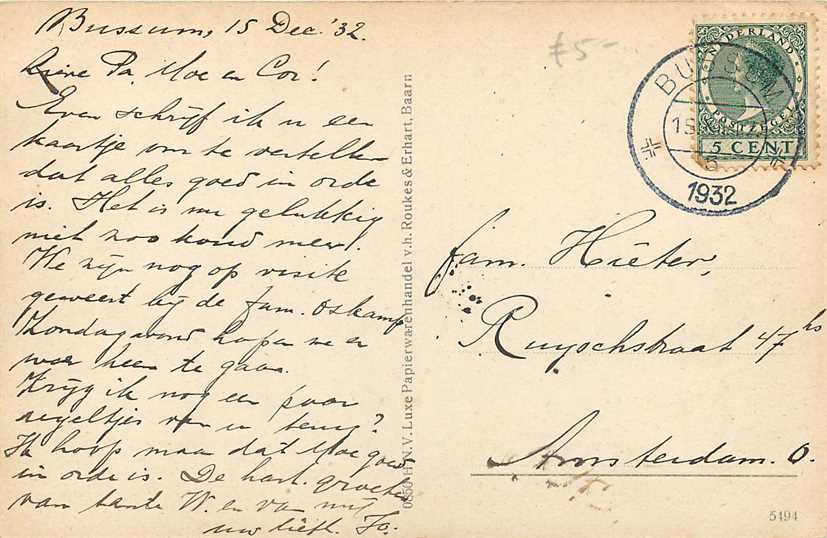 Bussum, 15 Dec. '32.
Lieve Pa, Moe en Cor!
Even schrijf ik u een
kaartje om te vertellen
dat alles goed in orde
is. Het is nu gelukkig
niet zoo koud meer!
We zijn nog op visite
geweest bij de fam. Oskamp
Zondagavond hopen we er
weer heen te gaan.
Krijg ik nog een paar
regeltjes van u terug?
Ik hoop maar dat Moe goed
in orde is. De hart. groeten
van tante W. en van mij
uw liefh. Jo.
0850 H N.V. Luxe Papierwarenhandel v.h. Roukes & Erhart, Baarn
£5-
NEDERLAND
POSTZEGEL
5 CENT
BUSSUM
1932
fam. Hiêter,
Ruyschstraat 47 hs
Amsterdam. O.
5494